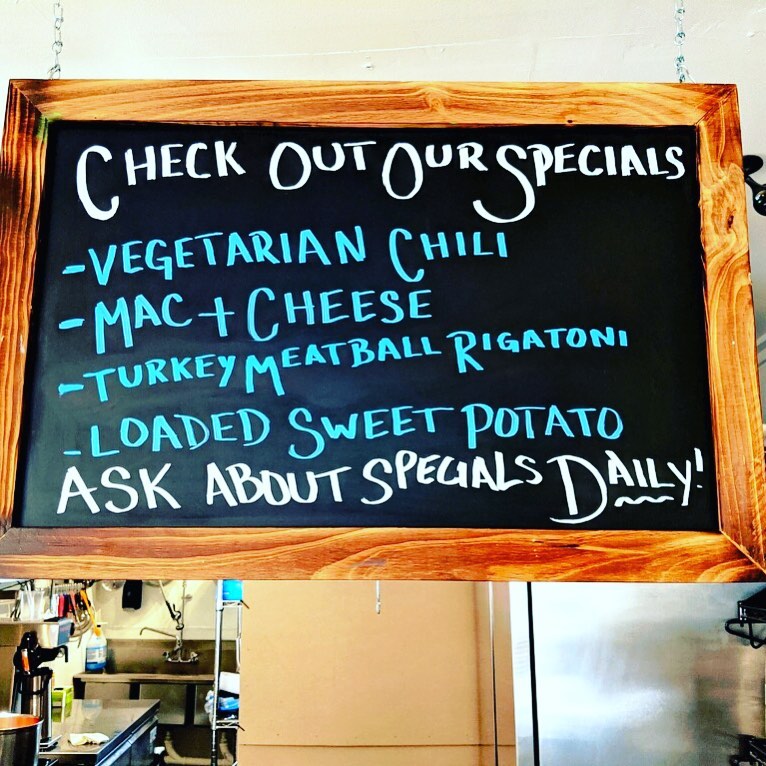 CHECK OUT OUR SPECIALS
-VEGETARIAN CHILI
-MAC + CHEESE
-TURKEY MEATBALL RIGATONI
-LOADED SWEET POTATO
ASK ABOUT SPECIALS DAILY!